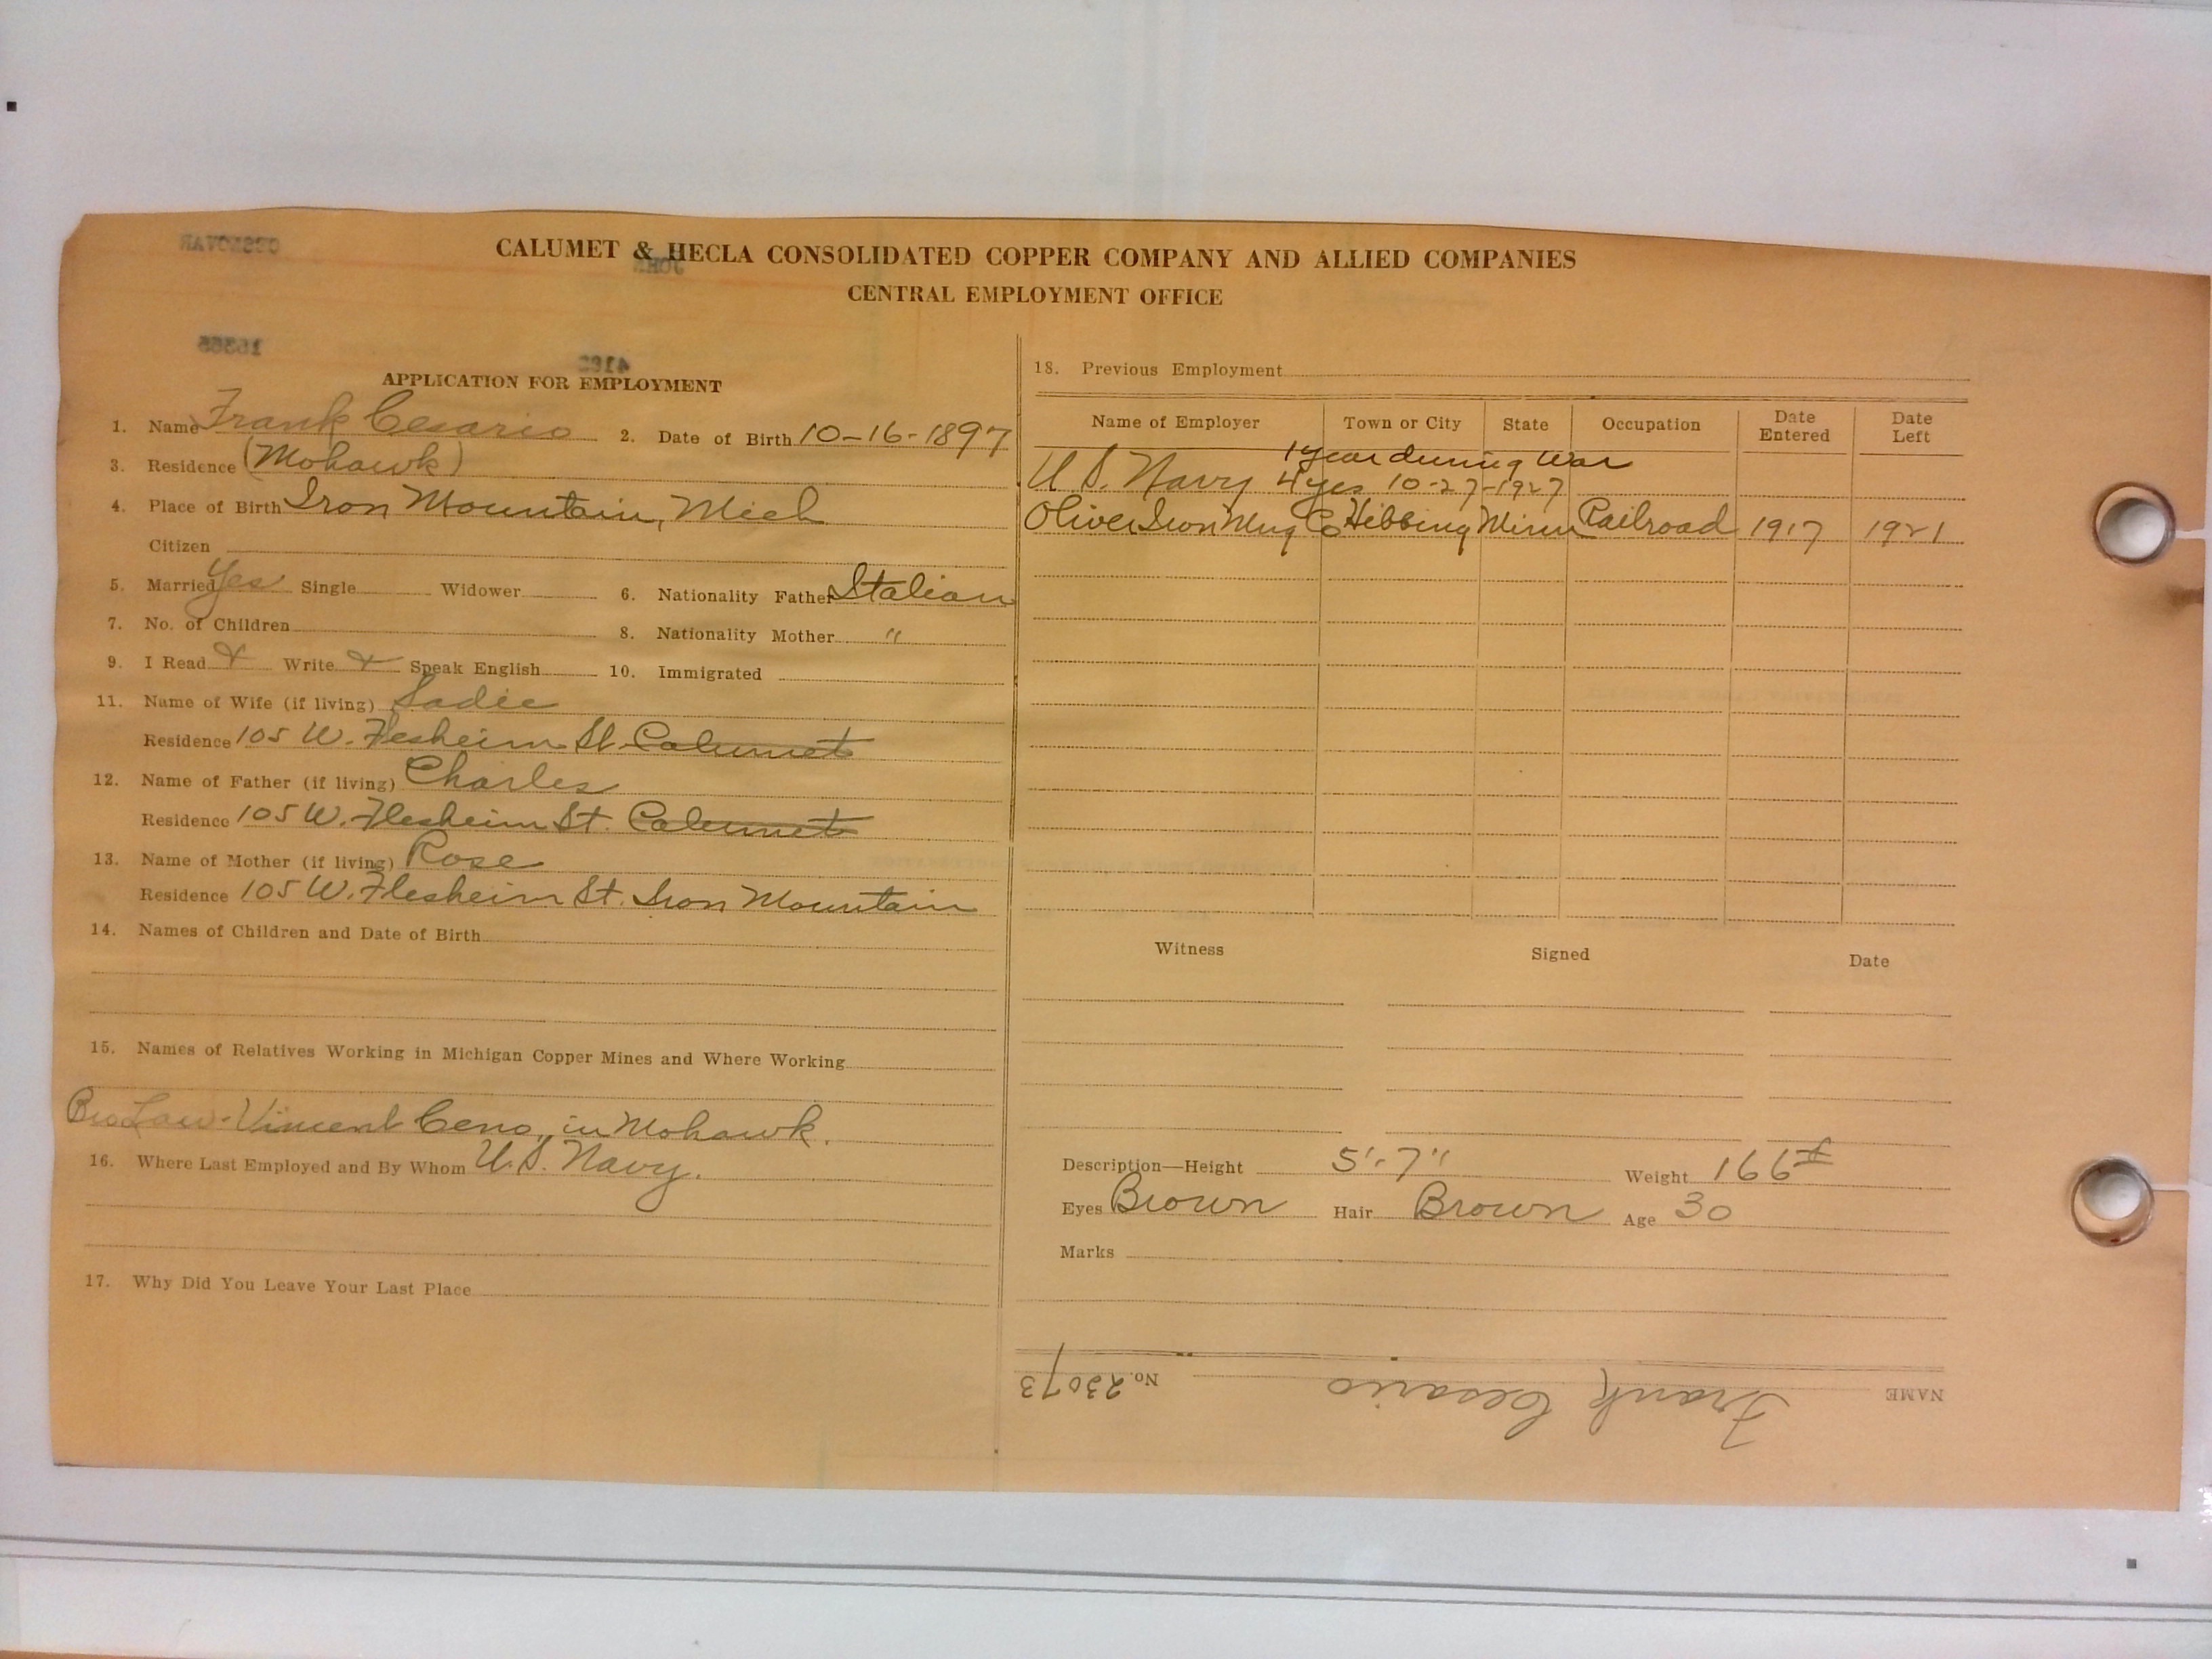 CALUMET & HECLA CONSOLIDATED COPPER COMPANY AND ALLIED COMPANIES
CENTRAL EMPLOYMENT OFFICE
APPLICATION FOR EMPLOYMENT
1. Name Frank Cesario 2. Date of Birth 10-16-1897
3. Residence (Mohawk)
4. Place of Birth Iron Mountain, Mich
Citizen
5. Married Yes Single Widower 6. Nationality Father Italian
7. No. of Children 8. Nationality Mother "
9. I Read Write Speak English 10. Immigrated
11. Name of Wife (if living) Sadie
Residence 105 W. Flesheim St. Calumet
12. Name of Father (if living) Charles
Residence 105 W. Flesheim St. Calumet
13. Name of Mother (if living) Rose
Residence 105 W. Flesheim St. Iron Mountain
14. Names of Children and Date of Birth
15. Names of Relatives Working in Michigan Copper Mines and Where Working
Bro Law - Vincent Ceno, in Mohawk.
16. Where Last Employed and By Whom U.S. Navy.
17. Why Did You Leave Your Last Place
18. Previous Employment
Name of Employer Town or City State Occupation Date Entered Date Left
1 year during War
U.S. Navy 4 yes 10-27-1927
Oliver Iron Mng Co Hibbing Minn Railroad 1917 1921
Witness Signed Date
Description—Height 5'-7" Weight 166#
Eyes Brown Hair Brown Age 30
Marks
NAME Frank Cesario No. 23073